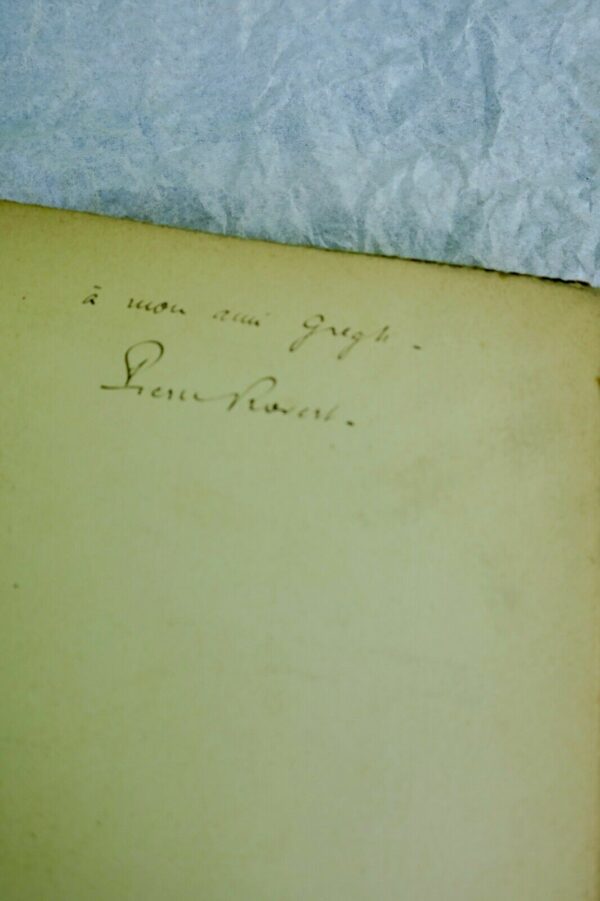 à mon ami Gregh -
Pierre